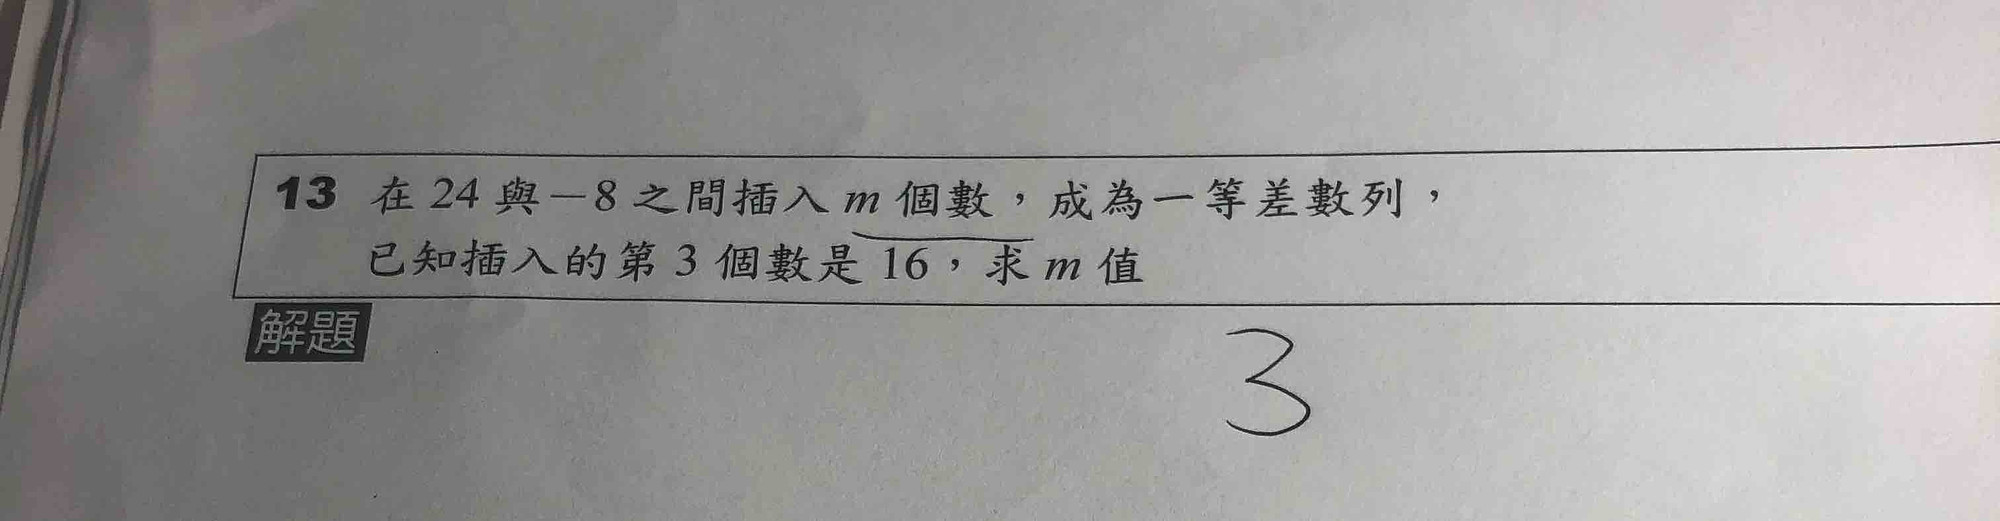 13 在 24 與－8 之間插入 m 個數，成為一等差數列，
已知插入的第 3 個數是 16，求 m 值
解題
3